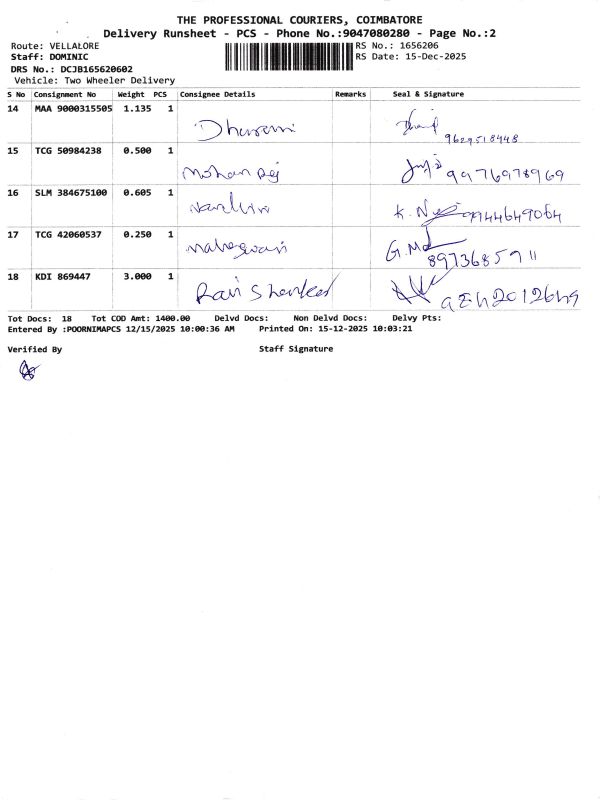 THE PROFESSIONAL COURIERS, COIMBATORE
Delivery Runsheet - PCS - Phone No.:9047080280 - Page No.:2
Route: VELLALORE
RS No.: 1656206
Staff: DOMINIC
RS Date: 15-Dec-2025
DRS No.: DCJB165620602
Vehicle: Two Wheeler Delivery
S No Consignment No Weight PCS Consignee Details Remarks Seal & Signature
14 MAA 9000315505 1.135 1
9629518448
15 TCG 50984238 0.500 1 Mohan Raj 9976978969
16 SLM 384675100 0.605 1 9944649064
17 TCG 42060537 0.250 1 Maheswari 8973685911
18 KDI 869447 3.000 1 Ravi Shankar
Tot Docs: 18 Tot COD Amt: 1400.00 Delvd Docs: Non Delvd Docs: Delvy Pts:
Entered By :POORNIMAPCS 12/15/2025 10:00:36 AM Printed On: 15-12-2025 10:03:21
Verified By Staff Signature